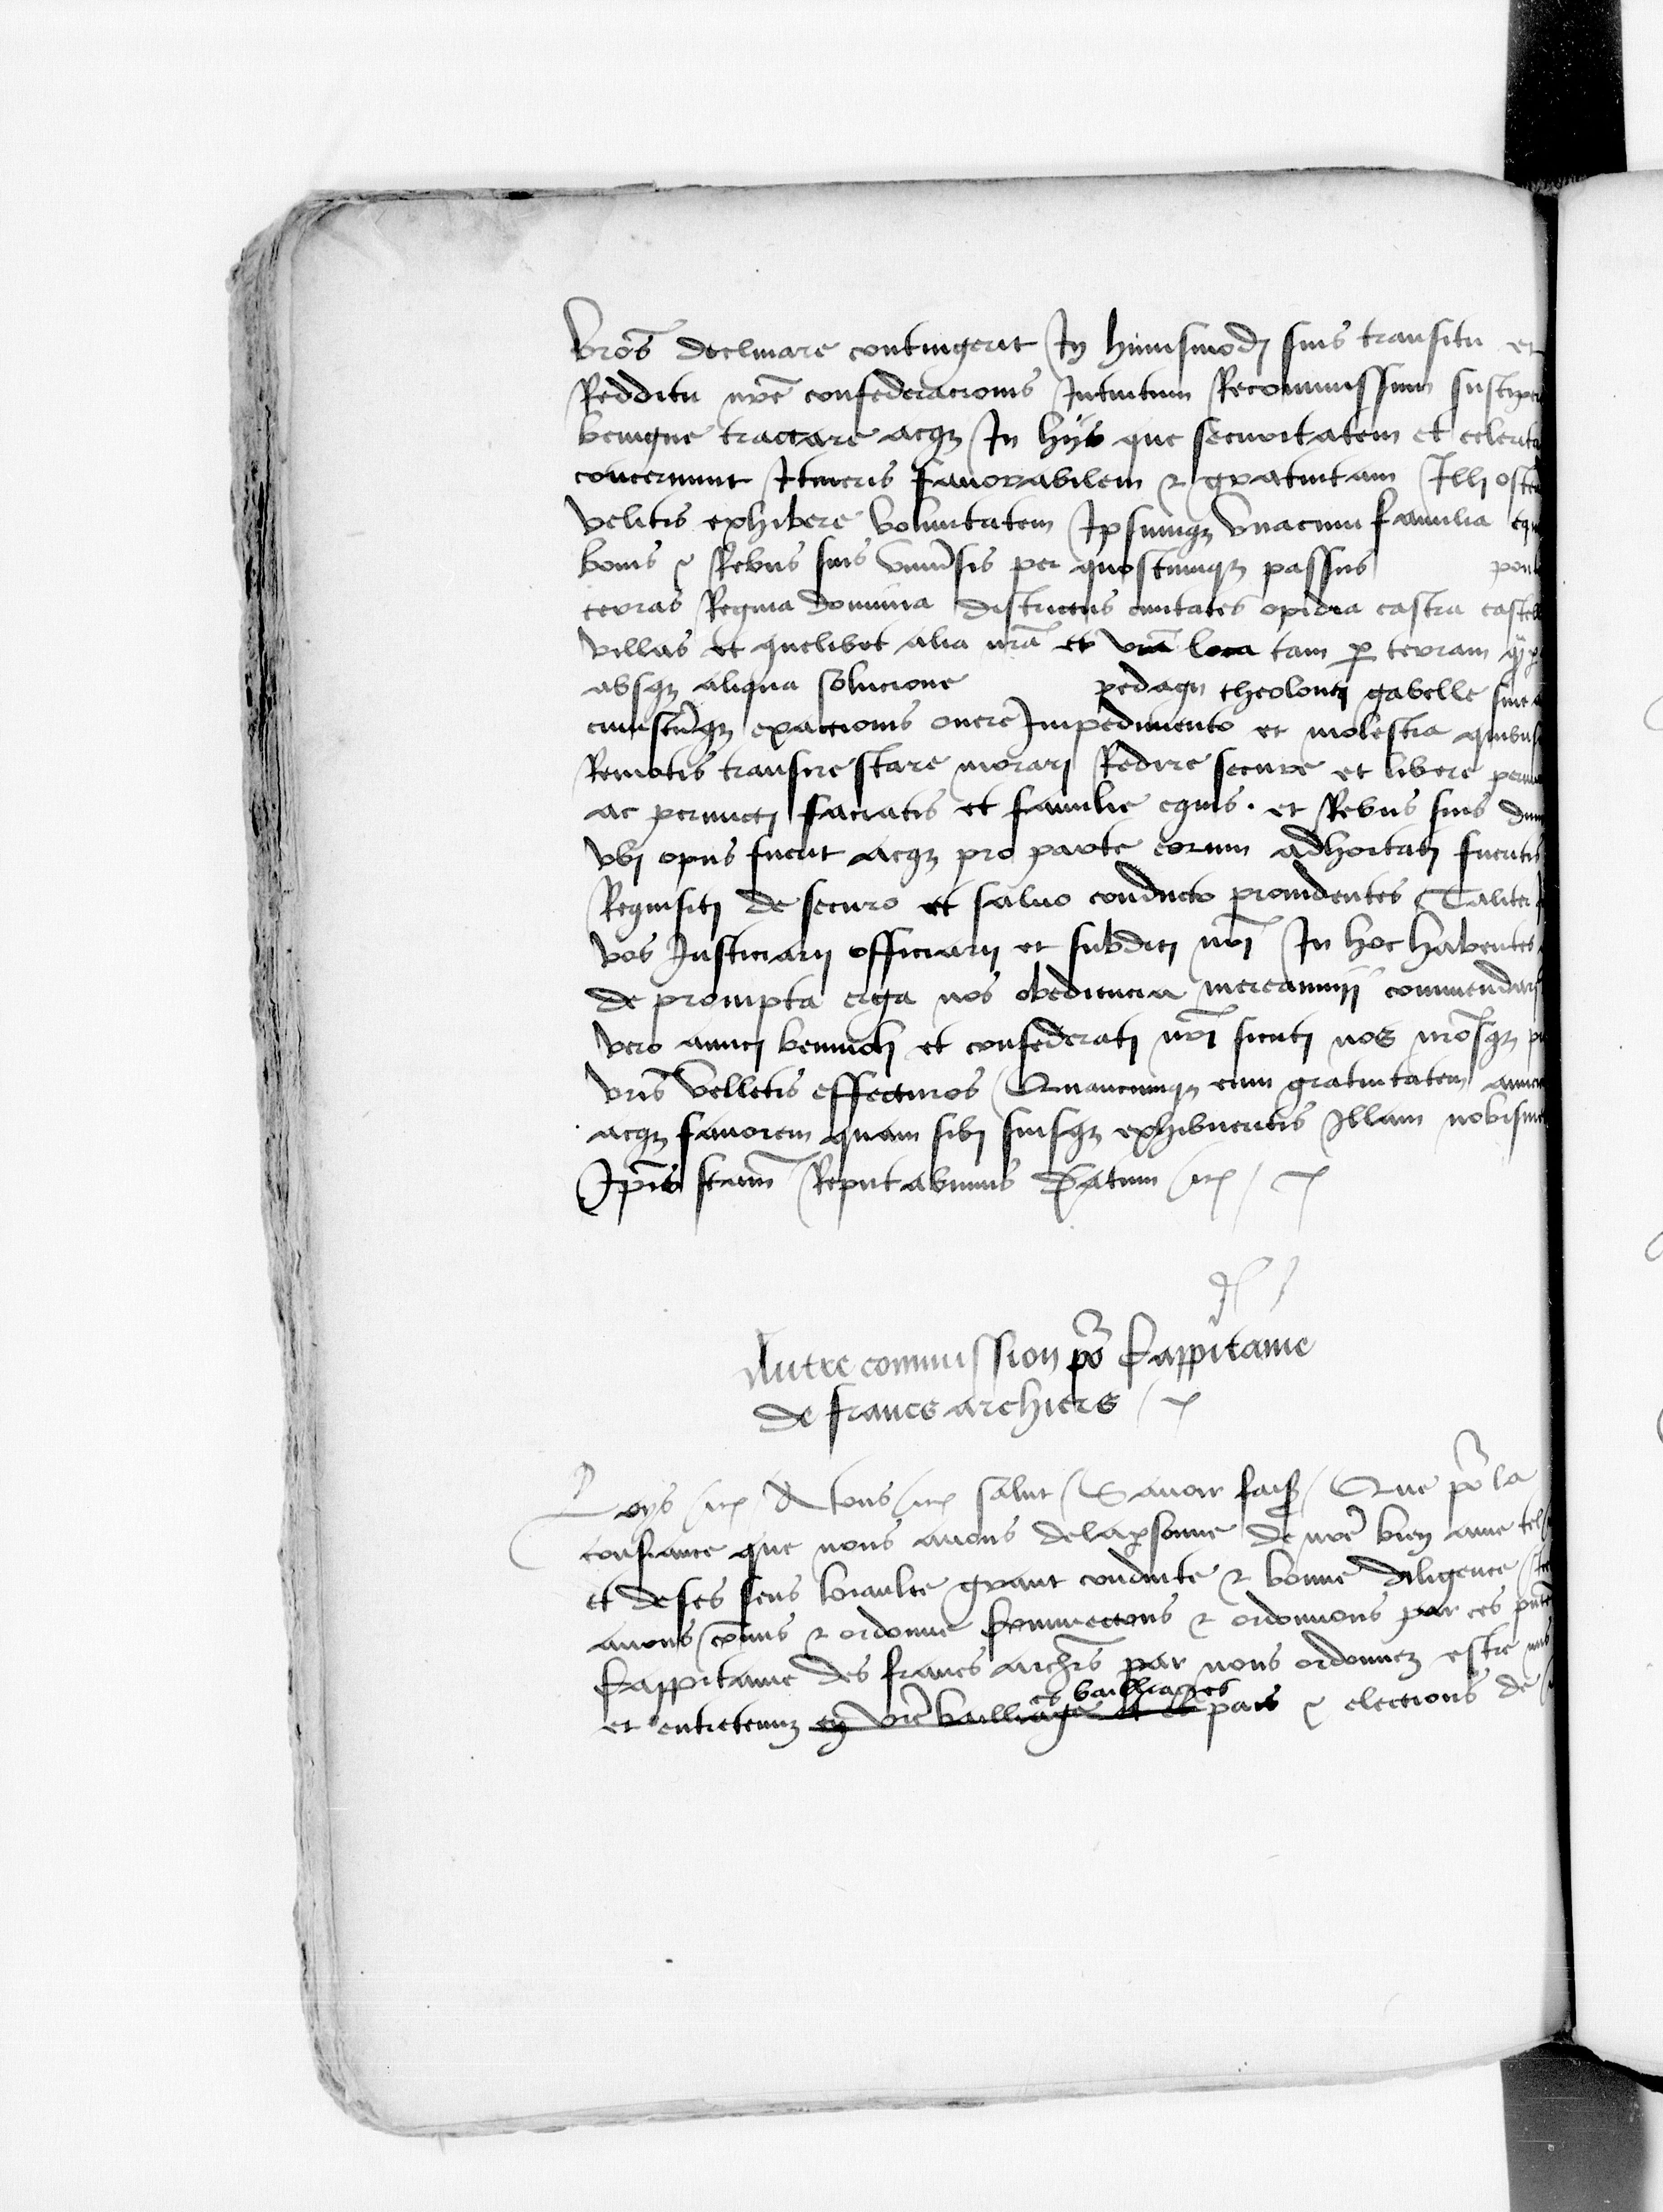 vros declinare contingerit In huiusmodi suis transitu et
Redditu nre confederacionis Intuitum Recommissum suscipe
benigne tractare acqz In hijs que securitatem et celerita
concernunt Itineris favorabilem & gratuitam Illi osten
velitis exhibere voluntatem Ipsumqz vnacum familia equ
bonis & Rebus suis vniusis per quoscumqz passus pon
terras Regna dominia districtus ciuitates opida castra castell
villas et quelibet alia nra et vra loca tam p terram q p
absqz aliqua solucione pedagii theolonei gabelle siue a
cuiuscumqz exactionis onere Impedimento et molestia quibus
Remotis transire stare morari Redire secure et libere perm
ac permicti faciatis et familie equis . et Rebus suis dum
vbi opus fuerit acqz pro parte eorum adhortati fueritis
Requisiti de securo et saluo conductu prouidentes Taliter
vos Justiciarii officiarii et subditi nri In hoc habentes
de prompta erga nos obediencia mereamini commendari
vero amici beniuoli et confederati nri sicuti nos nrosqz p
vris velletis effecturos Quamcumqz enim gratuitatem amic
acqz fauorem quam sibi suisqz exhibueritis Illam nobisme
Ipis fcam Reputabimus Datum etc
Autre commission por Cappitaine
de francs archiers
Loys etc A tous etc salut Sauoir fais Que por la
confiance que nous auons dela psonne de nre bien ame tel
et de ses sens loiaulte grant conduite & bonne diligence
auons cmis & ordonne commectons & ordonnons par ces pntes
Cappitaine des francs archrs par nous ordonnez estre mis
et entretenuz en vre bailliage et es es bailliages pais & elections de